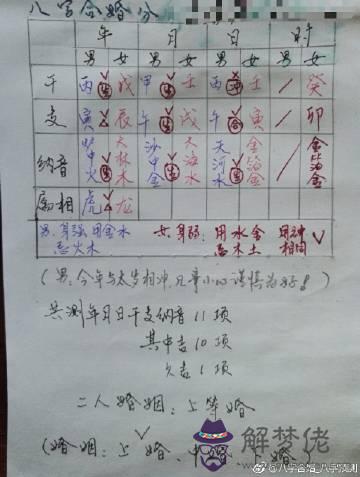 八字合婚分
年 月 日 时
男 女 男 女 男 女 男 女
干 丙 生 戊 甲 生 壬 丙 冲 壬 / 癸
支 寅 辰 午 合 戌 午 合 寅 / 卯
纳音 炉中火 生 大林木 沙中金 生 大海水 天河水 生 金箔金 / 金箔金
属相 虎 龙
男:身强用金水 女:身弱:用水金 用神
忌火木 忌木土 相同
(男:今年与太岁相冲,凡事小心谨慎为好!)
共测年月日干支纳音11项
其中吉10项
欠吉1项
二人婚姻:上等婚
(婚姻:上 中 上婚)
解梦佬
@八字合婚_八字预测